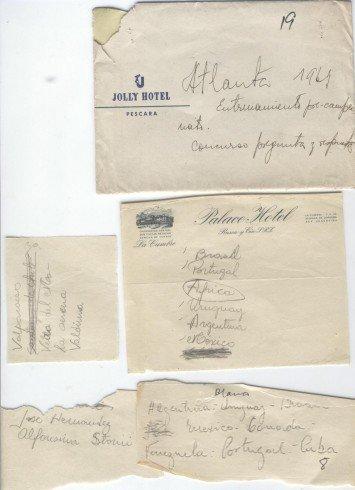 19
JOLLY HOTEL
PESCARA
Atlanta 1941
Entrenamiento pre-camp
nato.
Concurso pregunta y
Palace-Hotel
La Cumbre
Brasil
Portugal
Africa
Uruguay
Argentina
Mexico
Valparaiso
Viña del Mar
La serena
Valdivia
José Hernandez
Alfonsina Storni
Argentina - Uruguay -
Mexico - Canada -
Portugal - Cuba
8